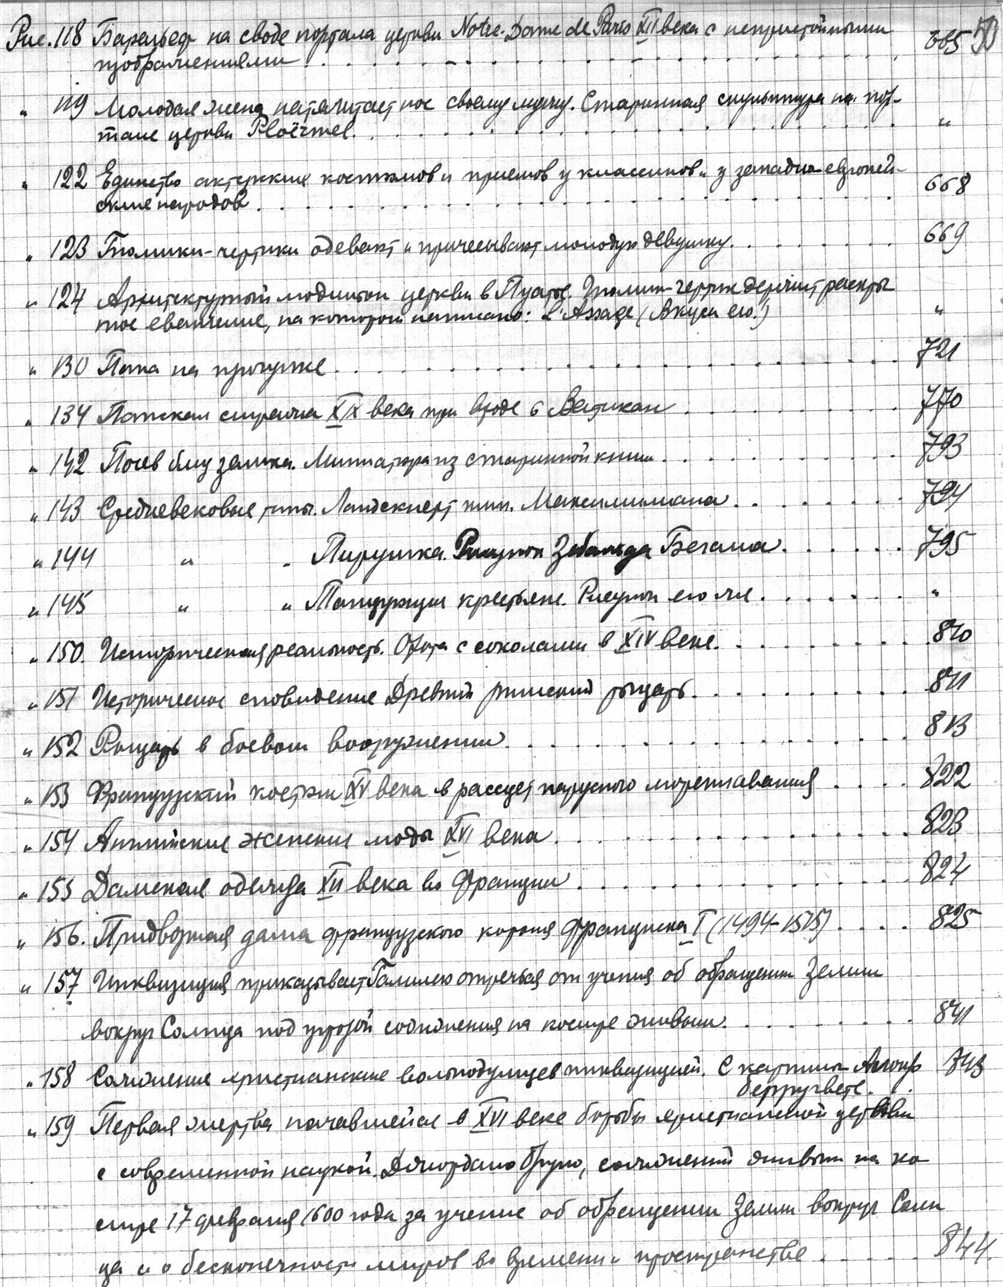 Рис. 118 Барельеф на своде портала церкви Notre-Dame de Paris XII века с непристойными 665 50
изображениями
" 119 Молодая жена натягивает нос своему мужу. Старинная скульптура на пор-
тале церкви Ploërmel. "
" 122 Единство актерских костюмов и приемов у классиков и у западно-европей-
ских народов 668
" 123 Гномики-чертики одевают и причесывают молодую девушку. 669
" 124 Архитектурный модильон церкви в Пуатье. Гномик-чертик держит раскры
тое евангелие, на котором написано: (Вкуси его!) "
" 130 Папа на прогулке 721
" 134 Папская стража XIX века при входе в Ватикан 770
" 142 Посев близ замка. Миниатюра из старинной книги 793
" 143 Средневековые типы. Ландскнехт имп. Максимилиана 794
" 144 " " Пирушка. Рисунок Зебальда Бегама 795
" 145 " " Танцующие крестьяне. Рисунок его же "
" 150. Историческая реальность. Охота с соколами в XIV веке. 810
" 151 Историческое сновидение Древний римский рыцарь 811
" 152 Рыцарь в боевом вооружении 813
" 153 Французский костюм XV века в рассвет парусного мореплавания 822
" 154 Английские женские моды XVI века 823
" 155 Дамская одежда XII века во Франции 824
" 156. Придворная дама французского короля Франциска I (1494-1515) 825
" 157 Инквизиция приказывает Галилею отречься от учения об обращении Земли
вокруг Солнца под угрозой сожжения на костре живым 841
" 158 Сожжение христианских вольнодумцев инквизицией. С картины 843
" 159 Первая жертва начавшейся в XVI веке борьбы христианской церкви
с современной наукой. Джордано Бруно, сожженный живым на ко
стре 17 февраля 1600 года за учение об обращении Земли вокруг Солн
ца и о бесконечности миров во времени и пространстве 844